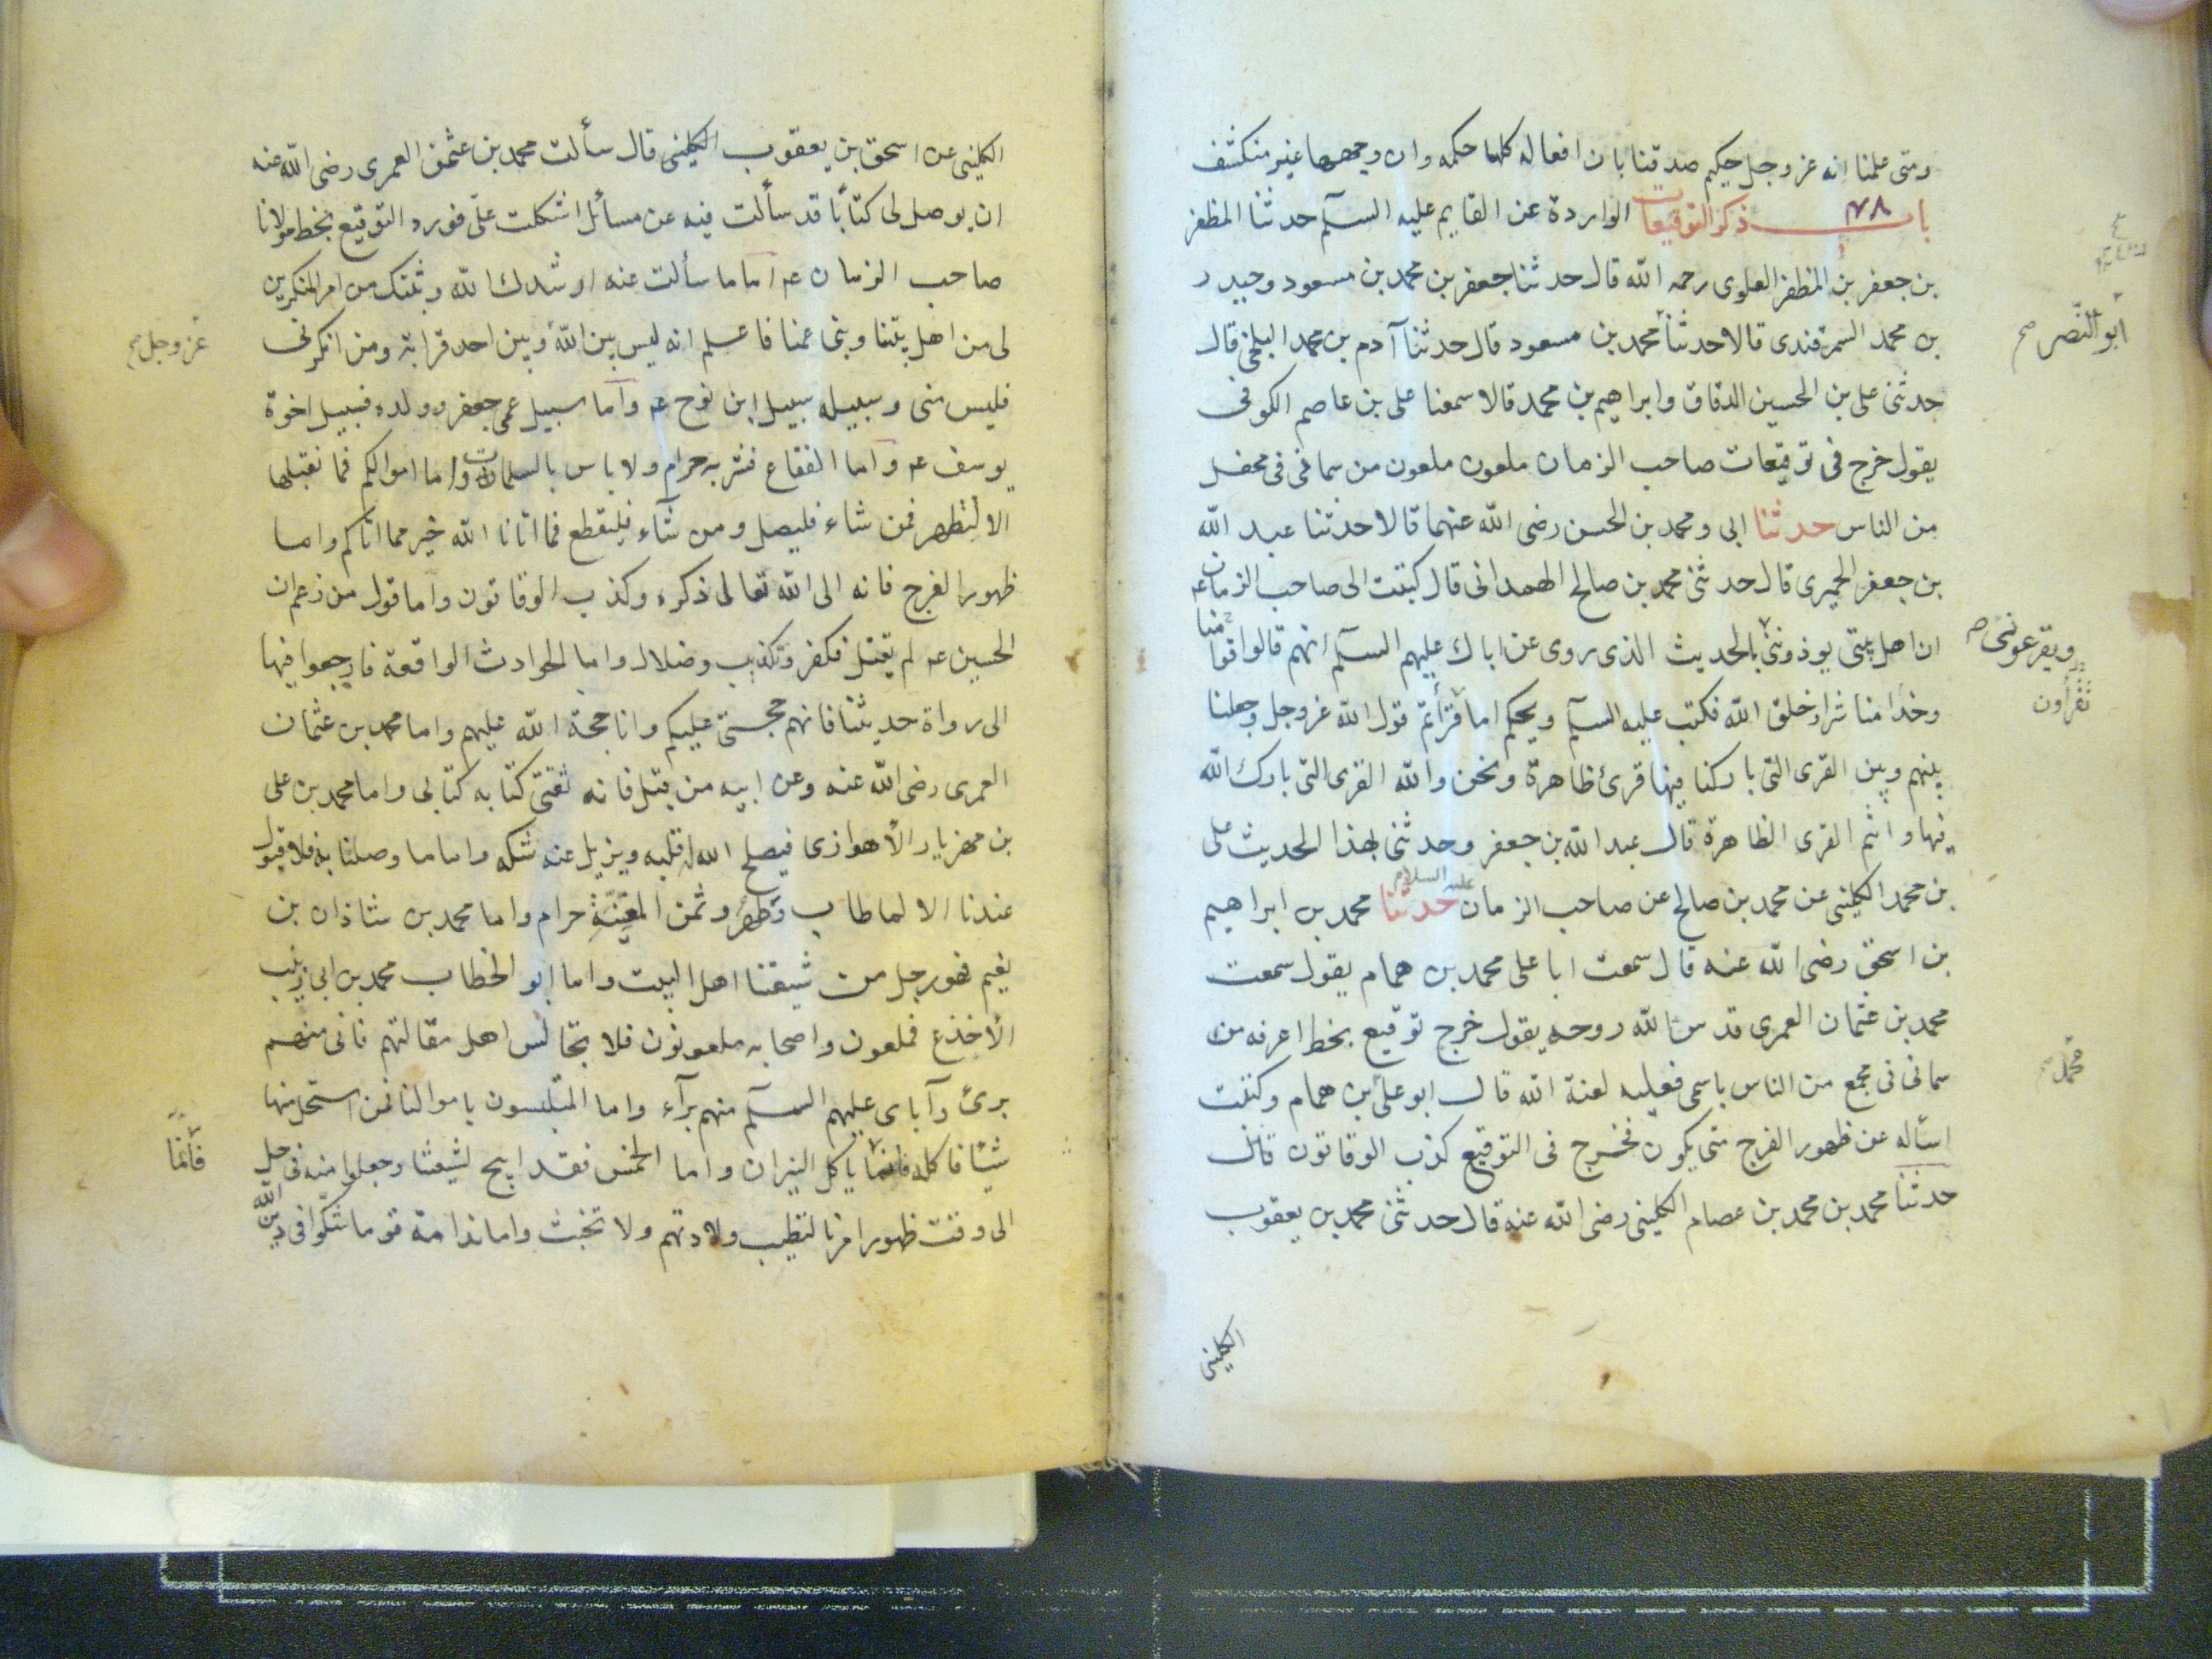 ومتى علمنا انه عز وجل حكيم صدقنا بان افعاله كلها حكمه وان وجهها غير منكشف
باب ذكر التوقيعات الواردة عن القايم عليه السلم حدثنا المظفر
بن جعفر بن المظفر العلوى رحمه الله قال حدثنا جعفر بن محمد بن مسعود وحيدر
بن محمد السمرقندى قالا حدثنا محمد بن مسعود قال حدثنا آدم بن محمد البلخى قال
ابو النصر صح
حدثنى على بن الحسين الدقاق وابراهيم بن محمد قالا سمعنا على بن عاصم الكوفى
يقول خرج فى توقيعات صاحب الزمان ملعون ملعون من سمانى فى محفل
من الناس حدثنا ابى ومحمد بن الحسن رضى الله عنهما قالا حدثنا عبد الله
بن جعفر الحميرى قال حدثنى محمد بن صالح الهمدانى قال كتبت الى صاحب الزمان عم
ان اهل بيتى يوذوننى بالحديث الذى روى عن اباك عليهم السلم انهم قالوا قوامنا
ويقرعوننى صح
وخدامنا شرار خلق الله فكتب عليه السلم ويحكم اما قرأتم قول الله عز وجل وجعلنا
تقرأون
بينهم وبين القرى التى باركنا فيها قرىً ظاهرة ونحن والله القرى التى بارك الله
فيها وانتم القرى الظاهرة قال عبد الله بن جعفر وحدثنى بهذا الحديث على
بن محمد الكلينى عن محمد بن صالح عن صاحب الزمان عليه السلام حدثنا محمد بن ابراهيم
بن اسحق رضى الله عنه قال سمعت ابا على محمد بن همام يقول سمعت
محمد بن عثمان العمرى قدس الله روحه يقول خرج توقيع بخط اعرفه من
سمانى فى مجمع من الناس باسمى فعليه لعنة الله قال ابو على بن همام وكتبت
محمد صح
اسأله عن ظهور الفرج متى يكون فخرج فى التوقيع كذب الوقاتون قال
حدثنا محمد بن محمد بن عصام الكلينى رضى الله عنه قال حدثنى محمد بن يعقوب
الكلينى
الكلينى عن اسحق بن يعقوب الكلينى قال سألت محمد بن عثمن العمرى رضى الله عنه
ان يوصل لى كتابًا قد سألت فيه عن مسائل اشكلت علىّ فورد التوقيع بخط مولانا
صاحب الزمان عم اما ما سألت عنه ارشدك الله وثبتك من امر المنكرين
لى من اهل بيتنا وبنى عمنا فاعلم انه ليس بين الله وبين احد قرابة ومن انكرنى
عز وجل صح
فليس منى وسبيله سبيل ابن نوح عم واما سبيل عمى جعفر وولده فسبيل اخوة
يوسف عم واما الفقاع فشربه حرام ولا باس بالسلمات واما اموالكم فما نقبلها
الا لتطهر فمن شاء فليصل ومن شآء فليقطع فما اتانا الله خير مما اتاكم واما
ظهور الفرج فانه الى الله تعالى ذكره وكذب الوقاتون واما قول من زعم ان
الحسين عم لم يقتل فكفر وتكذيب وضلال واما الحوادث الواقعة فارجعوا فيها
الى رواة حديثنا فانهم حجتى عليكم وانا حجة الله عليهم واما محمد بن عثمان
العمرى رضى الله عنه وعن ابيه من قبل فانه ثقتى كتابه كتابى واما محمد بن على
بن مهزيار الأهوازى فيصلح الله له قلبه ويزيل عنه شكه واما ما وصلتنا به فلا قبول
عندنا الا لما طاب وطهر وثمن المغنية حرام واما محمد بن شاذان بن
نعيم فهو رجل من شيعتنا اهل البيت واما ابو الخطاب محمد بن ابى زينب
الأخذع فملعون واصحابه ملعونون فلا تجالس اهل مقالتهم فانى منهم
برئ وآباى عليهم السلم منهم برآء واما المتلبسون باموالنا فمن استحل منها
شيئًا فاكله فانما ياكل النيران واما الخمس فقد ابيح لشيعتنا وجعلوا منه فى حل
فأنما
الى وقت ظهور امرنا لتطيب ولادتهم ولا تخبث واما ندامة قوم شكّوا فى دين الله